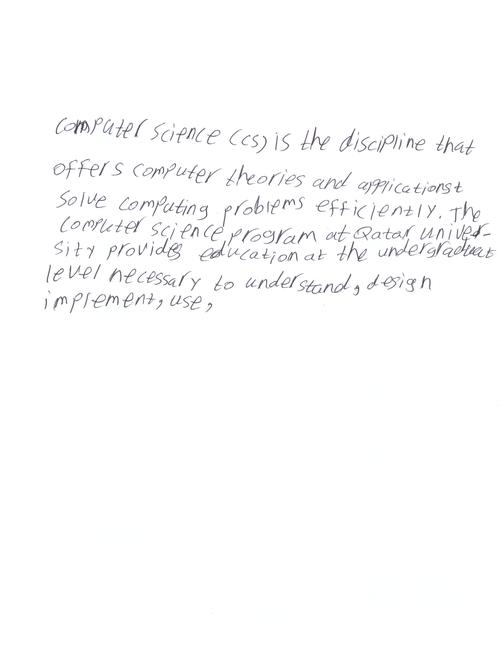 Computer Science (CS) is the discipline that
offers computer theories and applicationst
solve computing problems efficiently. The
computer science program at Qatar Univer-
sity provides education at the undergraduat
level necessary to understand, design
implement, use,